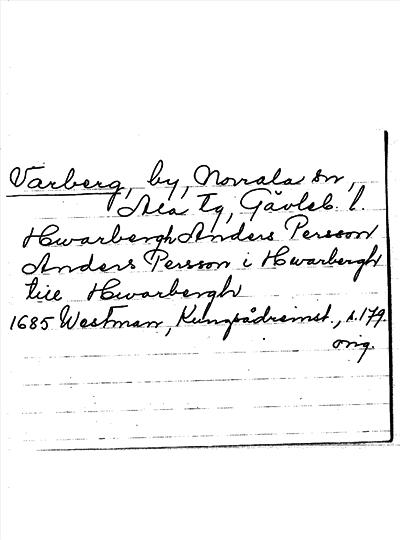 Varberg, by, Norrala sn,
Ala tg, Gävleb. l.
Hwarbergh Anders Persson
Anders Persson i Hwarbergh
till Hwarbergh
1685 Westman, Kungsådreinst., s. 179.